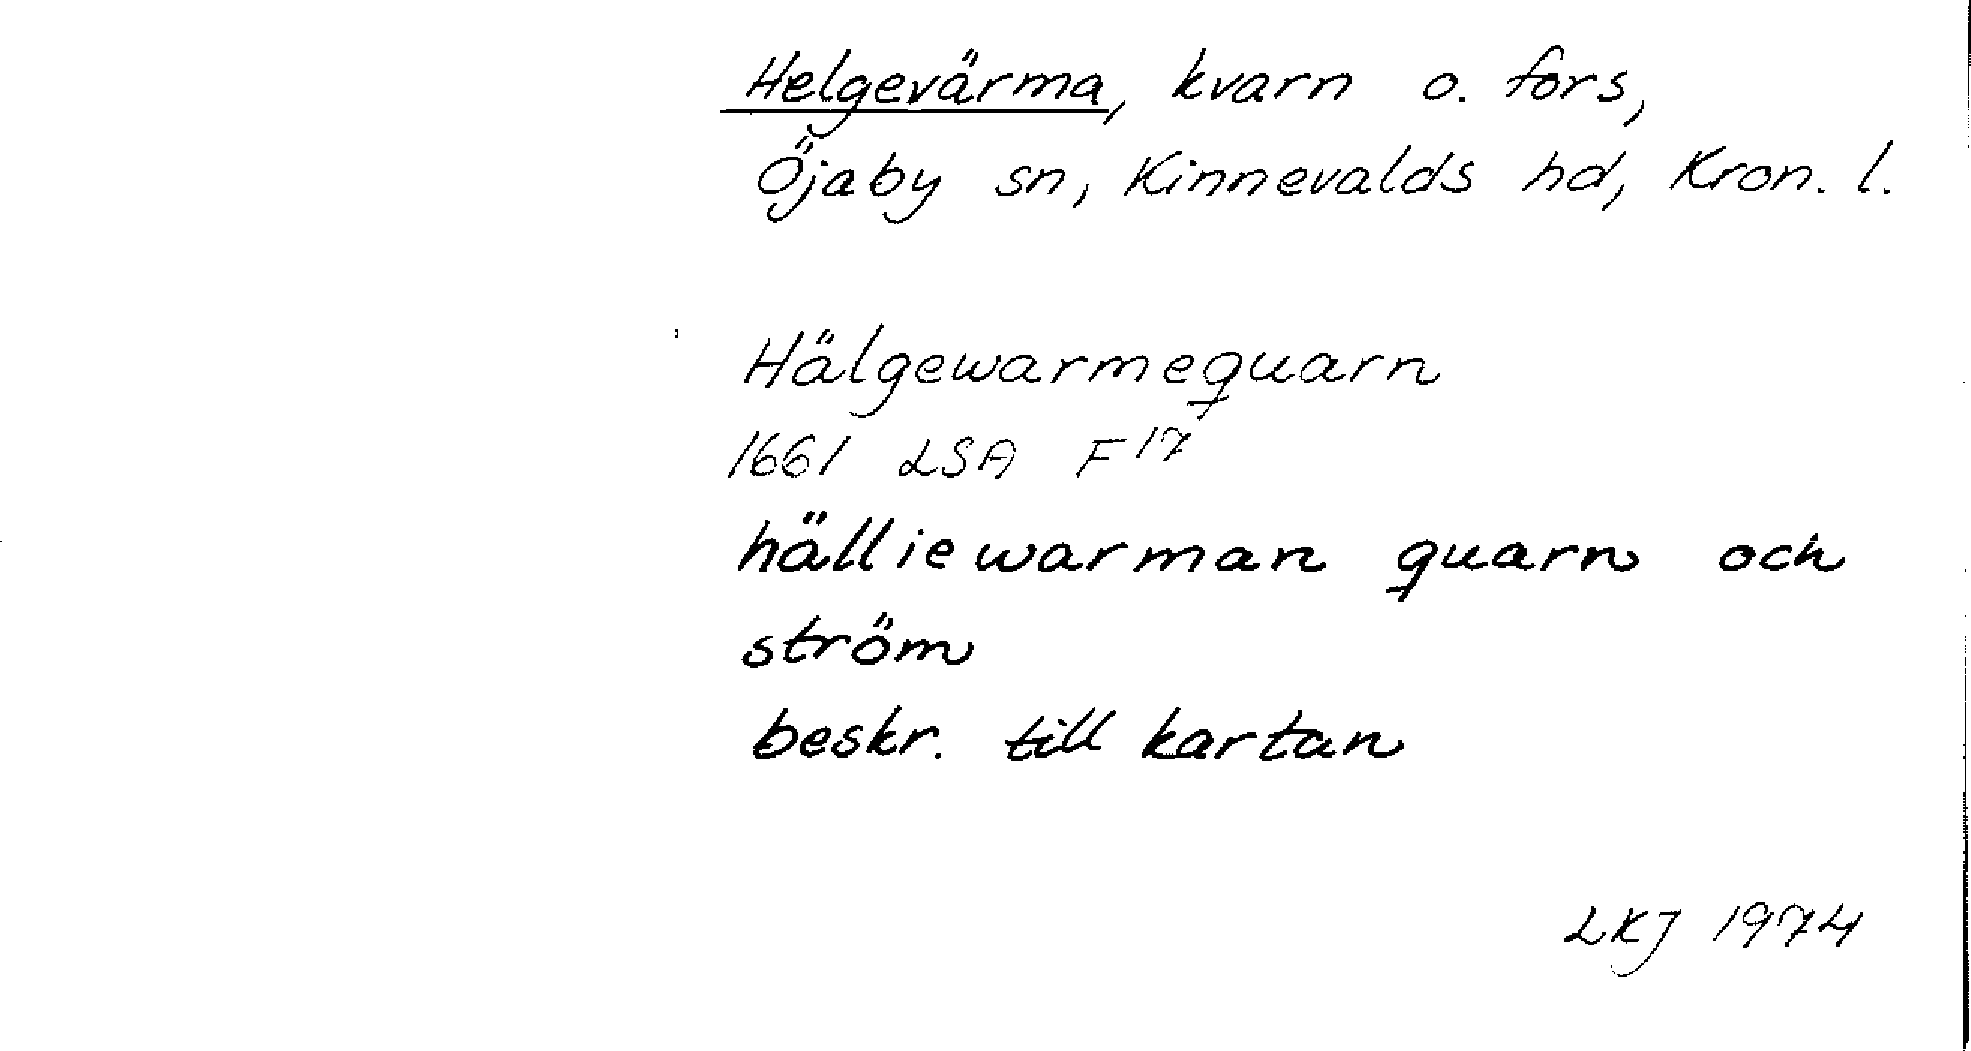 Helgevärma, kvarn o. fors,
Öjaby sn, Kinnevalds hd, Kron. l.
Hälgewarmequarn
1661 LSA F 17
hälliewarman quarn och
ström
beskr. till kartan
LKJ 1974